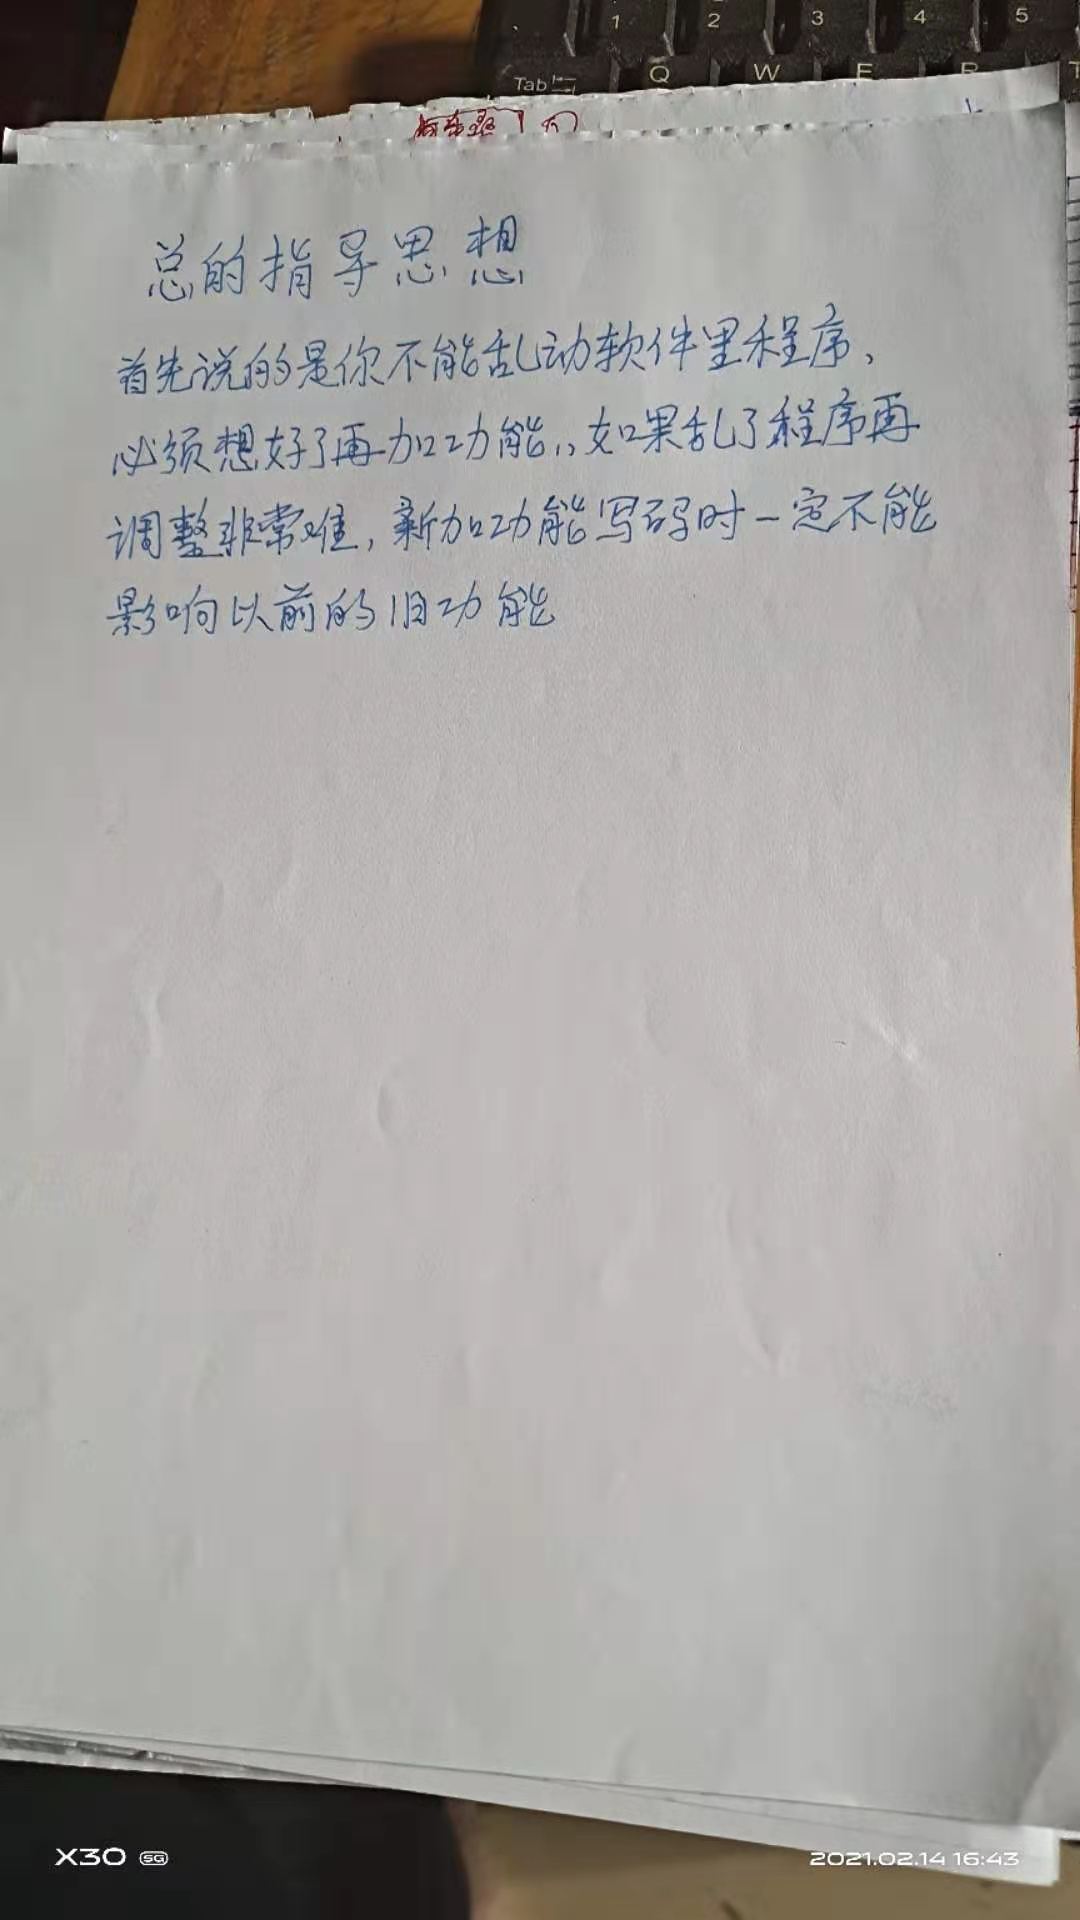 1 2 3 4 5
Tab Q W E R T
总的指导思想
首先说的是你不能乱动软件里程序、
必须想好了再加功能,,如果乱了程序再
调整非常难,新加功能写码时一定不能
影响以前的旧功能
X30 5G
2021.02.14 16:43